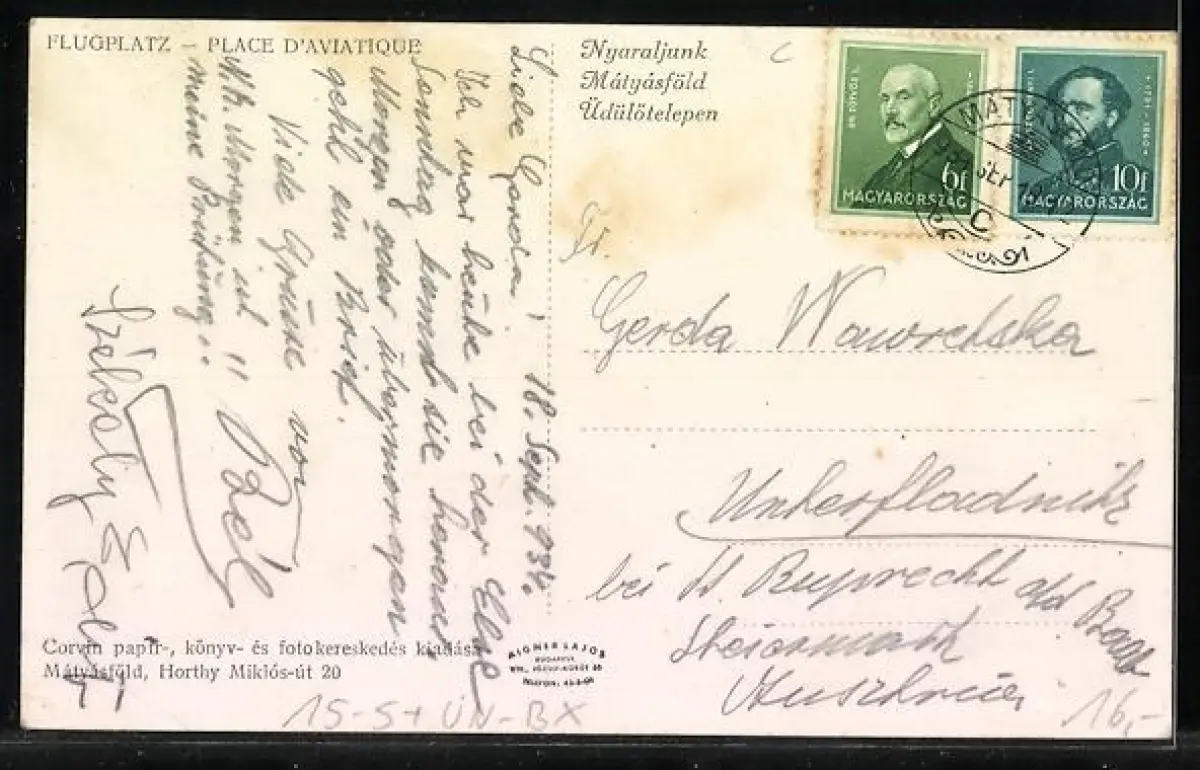 FLUGPLATZ – PLACE D'AVIATIQUE
Nyaraljunk
Mátyásföld
Üdülőtelepen
18. Sept. 934.
Liebe Gerda!
Ich war heute bei der Elsa
Sonntag kommt sie heraus
Morgen oder übermorgen
geht ein Brief.
Viele Grüsse von
Bél
N.B. Morgen ist
meine Prüfung..
Székely
Fr.
Gerda Wawretska
Unterfladnitz
bei St. Ruprecht a/d Raab
Steiermark
Austria
6f
MAGYARORSZÁG
10f
MAGYARORSZÁG
1791-1860
MÁTYÁS
SEP
Corvin papír-, könyv- és fotokereskedés kiadása
Mátyásföld, Horthy Miklós-út 20
AIGNER LAJOS
BUDAPEST
VIII., JÓZSEF-KÖRÚT
TELEFON
15-5+ UN-BX
16,-